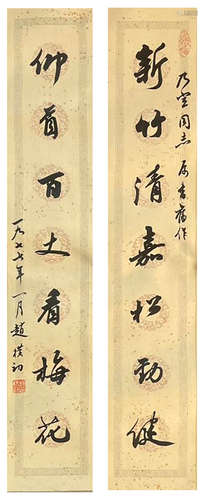 新竹清嘉松劲健
乃堂同志属書旧作
仰首百丈看梅花
一九七七年一月趙樸初